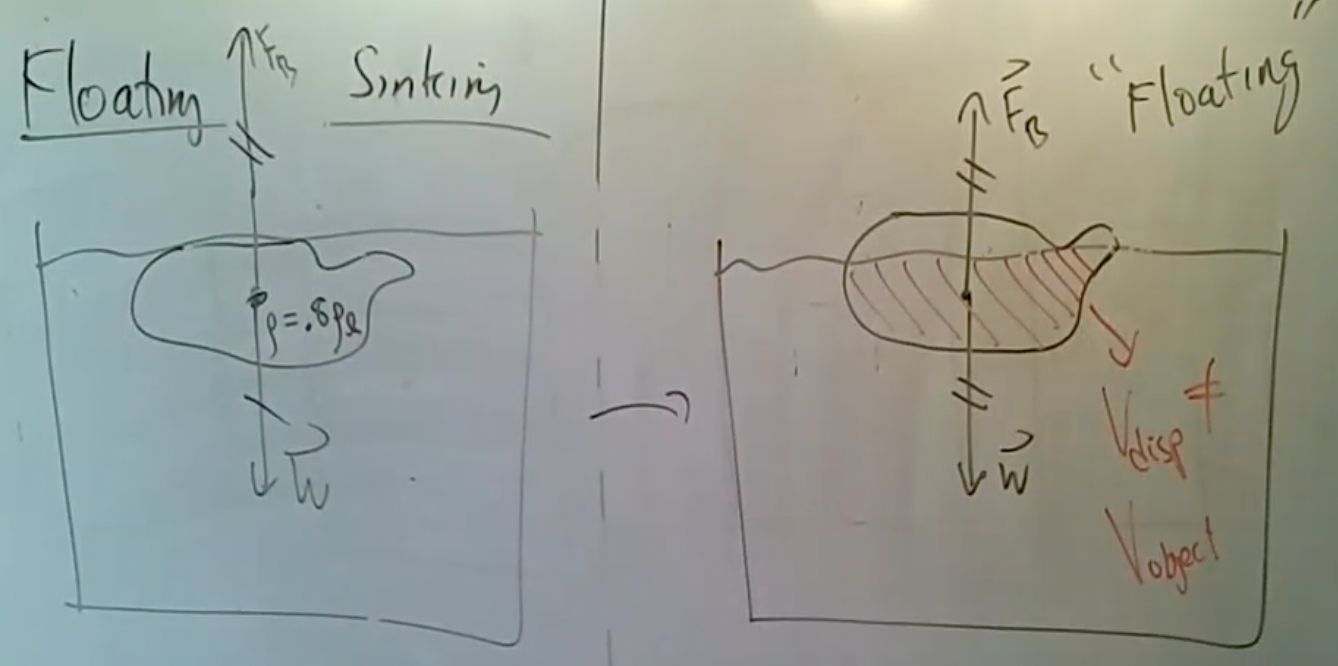 Floating Sinking
F_B
ρ=.8ρ_l
W⃗
F⃗_B
"Floating"
W⃗
V_disp ≠
V_object